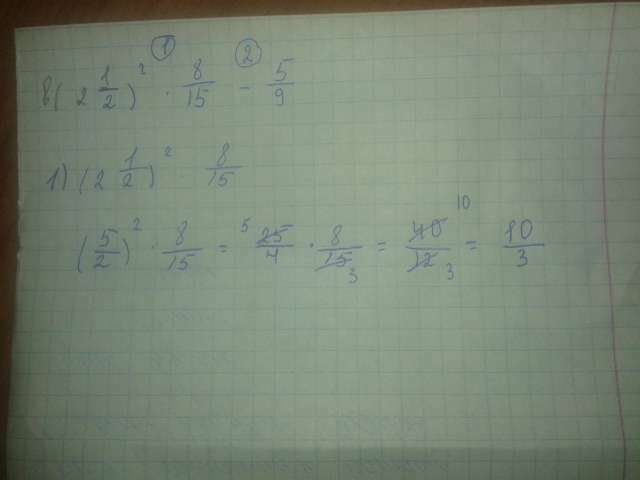 ① ②
в) (2 1/2)² · 8/15 - 5/9
1) (2 1/2)² · 8/15
(5/2)² · 8/15 = 5 25/4 · 8/15 3 = 40/12 10 3 = 10/3